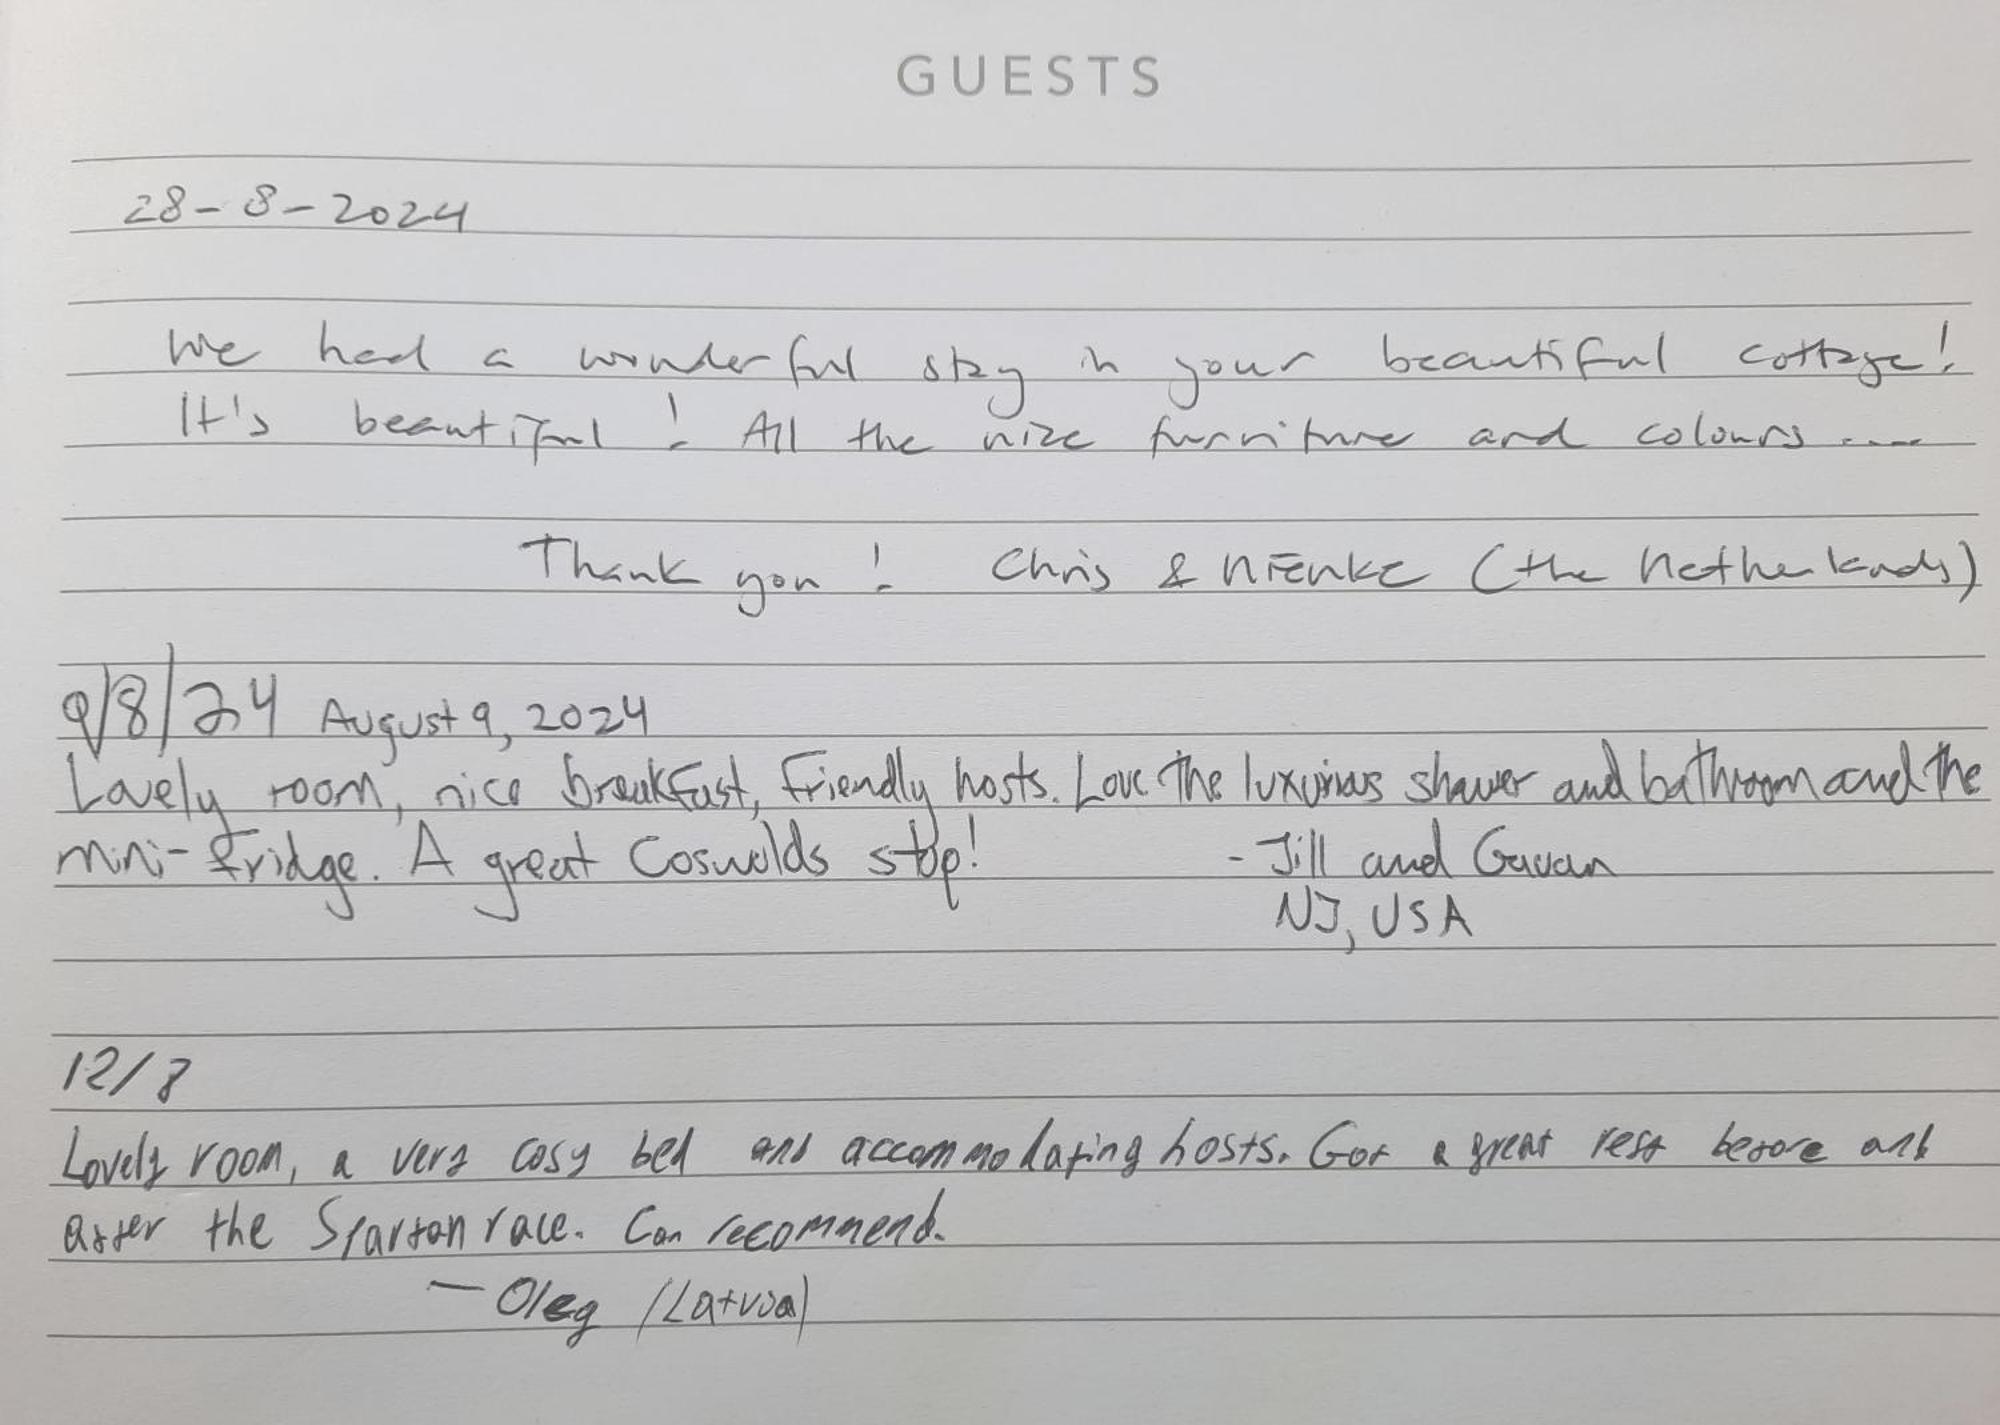 GUESTS
28-8-2024
We had a wonderful stay in your beautiful cottage!
It's beautiful! All the nize furniture and colours....
Thank you! Chris & Nienke (the Netherlands)
9/8/24 August 9, 2024
Lovely room, nice breakfast, friendly hosts. Love the luxurious shower and bathroom and the
mini-fridge. A great Coswolds stop!
- Jill and Gavan
NJ, USA
12/8
Lovely room, a very cosy bed and accommodating hosts. Got a great rest before and
after the Spartan race. Can recommend.
— Oleg (Latvia)